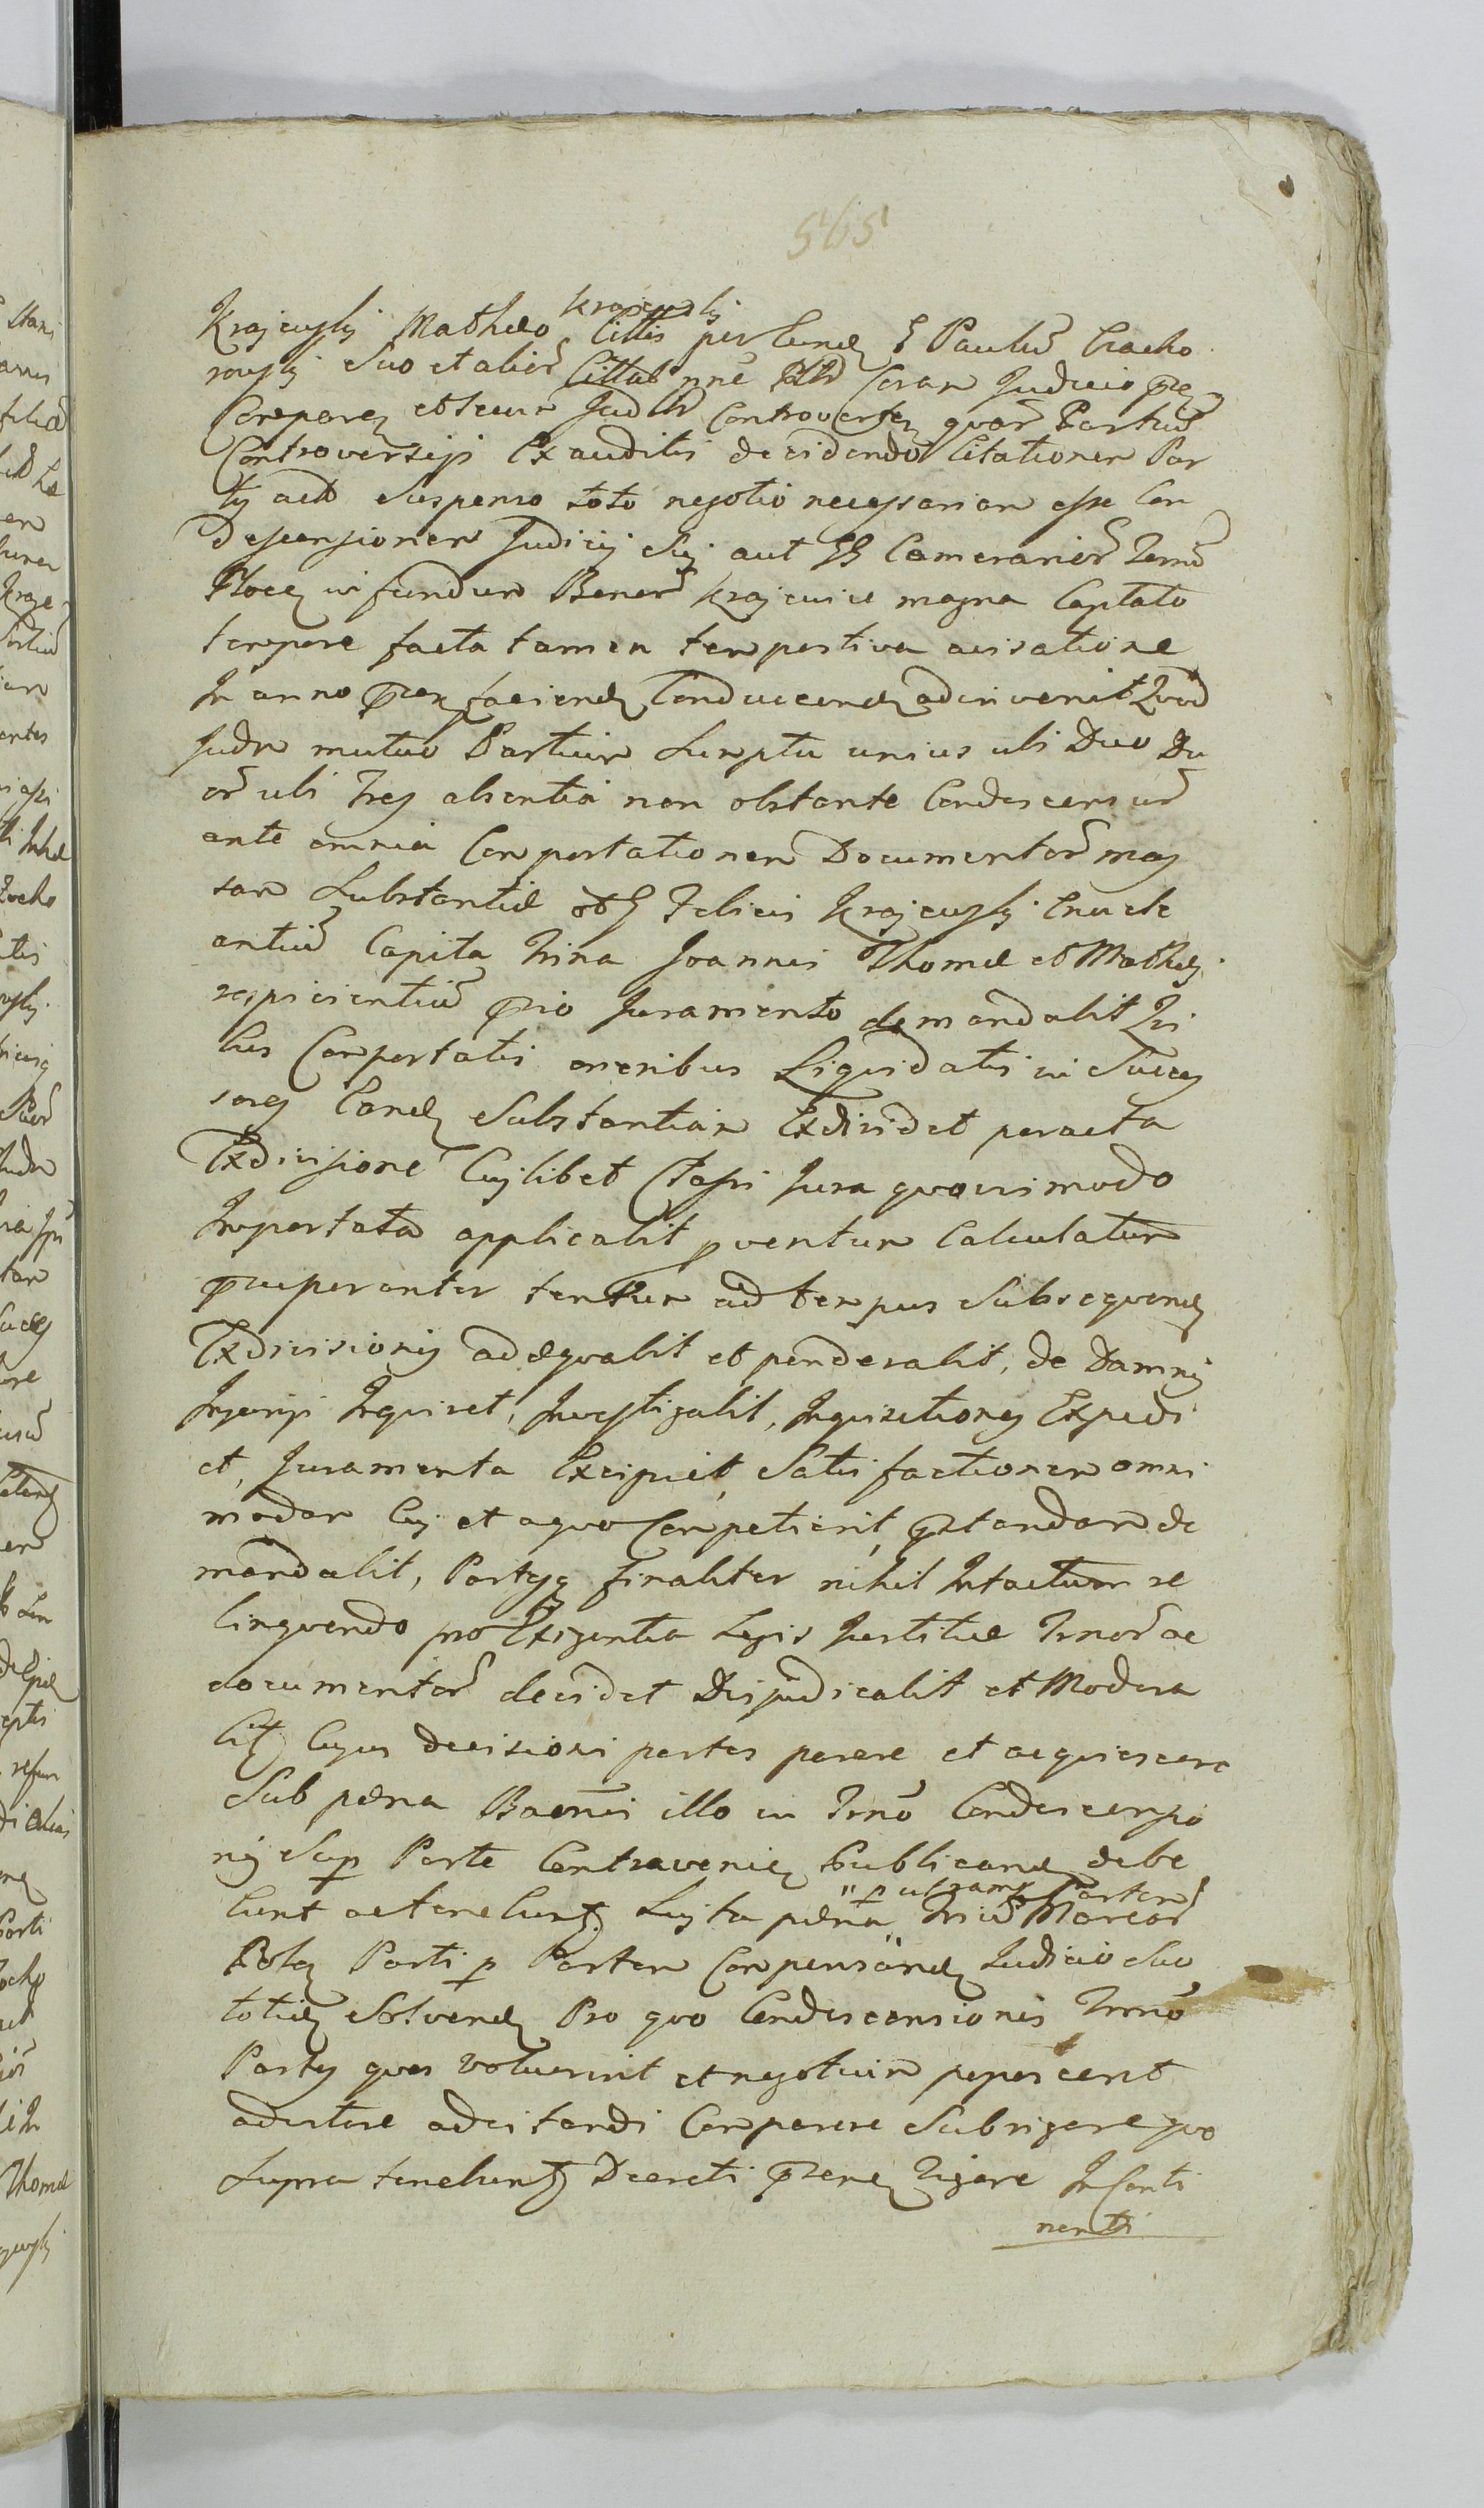 565
Krajewski
Krajewsky Matheo Cittis per Eund G Paulum Czacho
rowski Suo et alior Cittat nne Coram Judicio
Comparen et Controverten quar Partium
Controversijs Exauditis decidendo Citationem Par
tij acto Suspenso toto negotio necessariam esse Con
descensionem Judicij Sui aut Camerarior Terrae
Plocen in fundum Bonor Krajewice magna Captato
tempore facta tamen tempestiva avisatione
In anno faciend Conducend adinvenit Quod
Judm mutuo Partium Sumptu unius ubi Duo Du
or ubi Tres absentia non obstante Condescensur
ante omnia Comportationem Documentor mas
sam Substantiae Felicis Krajewski Enucle
antium Capita Trina Joannis Thomae et Mathei
respicientium prio Juramento demandabit Qui
bus Comportatis oneribus Liquidatis in Succes
sores Eand Substantiam Exdividet peracta
Exdivisione Cuilibet Stassi Jura quovismodo
Importata applicabit proventum Calculatum
ad tempus Subsequend
Exdivisionis adaequabit et ponderabit, de Damnis
Injurijs Inquiret, Investigabit, Inquisitiones Expedi
et, Juramenta Excipiet, Satisfactionem omni
modam Cui et a quo Competierit, praestandam de
mandabit, Partesq finaliter nihil Intactum re
linquendo pro Exigentia Legis Justitiae Trnor ac
documentor decidet Dijudicabit et Modera
bit Cujus decisioni partes parere et acquiescere
Sub paena Bannis illo in Trno Condescensio
nis Sup Parte Contravenien Publicand debe
" p utramq Partem
bunt ac tenebunt Luita paena " Trium Marcar
Polon Parti p Partem Compensand Judicio Suo
totid Solvend Pro quo Condescensionis Trmno
Partes quas voluerint et negotium poposcerit
adcitare adcitandi Comparere Subrigere quo
Supra tenebunt Decreti praesen Vigore In Conti
nenti